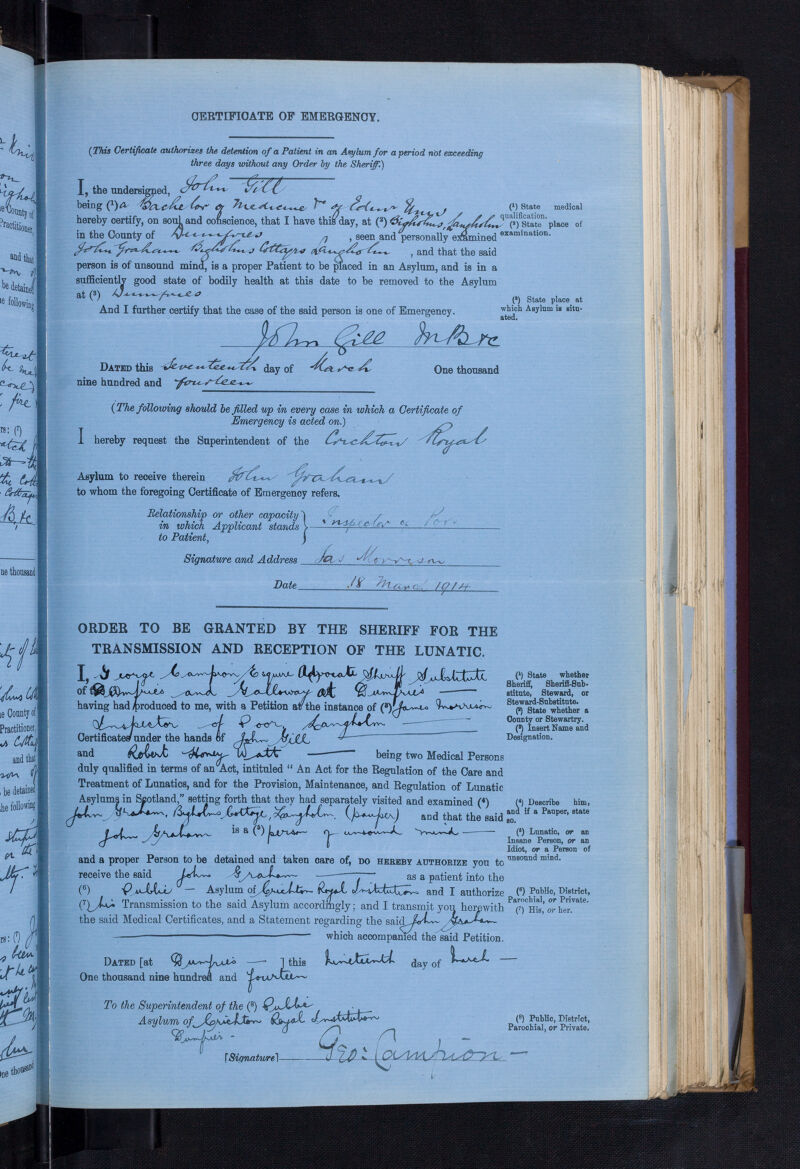 CERTIFICATE OF EMERGENCY.
(This Certificate authorizes the detention of a Patient in an Asylum for a period not exceeding
three days without any Order by the Sheriff.)
I, the undersigned, John Gill
being (¹) a Bachelor of Medicine &c of Edinr Univ
hereby certify, on soul and conscience, that I have this day, at (²) Bigholms, Langholm
in the County of Dumfries , seen and personally examined
John Graham Bigholms Cottages Langholm , and that the said
person is of unsound mind, is a proper Patient to be placed in an Asylum, and is in a
sufficiently good state of bodily health at this date to be removed to the Asylum
at (³) Dumfries
And I further certify that the case of the said person is one of Emergency.
John Gill M.B &c
DATED this Seventeenth day of March One thousand
nine hundred and fourteen
(¹) State medical
qualification.
(²) State place of
examination.
(³) State place at
which Asylum is situ-
ated.
(The following should be filled up in every case in which a Certificate of
Emergency is acted on.)
I hereby request the Superintendent of the Crichton Royal
Asylum to receive therein John Graham
to whom the foregoing Certificate of Emergency refers.
Relationship or other capacity
in which Applicant stands Inspector of Poor
to Patient,
Signature and Address Jas Morrison
Date 18 March 1914
ORDER TO BE GRANTED BY THE SHERIFF FOR THE
TRANSMISSION AND RECEPTION OF THE LUNATIC.
I, George Campion Esquire Advocate Sheriff Substitute
of Dumfries and Galloway at Dumfries
having had produced to me, with a Petition at the instance of (³) James Morrison
Inspector of Poor Langholm
Certificates under the hands of John Gill
and Robert Honey Watt being two Medical Persons
duly qualified in terms of an Act, intituled "An Act for the Regulation of the Care and
Treatment of Lunatics, and for the Provision, Maintenance, and Regulation of Lunatic
Asylums in Scotland," setting forth that they had separately visited and examined (⁴)
John Graham, Bigholms Cottage, Langholm. (pauper) and that the said
John Graham is a (⁵) person of unsound mind
and a proper Person to be detained and taken care of, DO HEREBY AUTHORIZE you to
receive the said John Graham as a patient into the
(⁶) Public Asylum of Crichton Royal Institution and I authorize
(⁷) his Transmission to the said Asylum accordingly; and I transmit you herewith
the said Medical Certificates, and a Statement regarding the said John Graham
which accompanied the said Petition.
DATED [at Dumfries ] this Nineteenth day of March
One thousand nine hundred and fourteen
To the Superintendent of the (⁸) Public
Asylum of Crichton Royal Institution
Dumfries
[Signature] Geo: Campion
(¹) State whether
Sheriff, Sheriff-Sub-
stitute, Steward, or
Steward-Substitute.
(²) State whether a
County or Stewartry.
(³) Insert Name and
Designation.
(⁴) Describe him,
and if a Pauper, state
so.
(⁵) Lunatic, or an
Insane Person, or an
Idiot, or a Person of
unsound mind.
(⁶) Public, District,
Parochial, or Private.
(⁷) His, or her.
(⁸) Public, District,
Parochial, or Private.